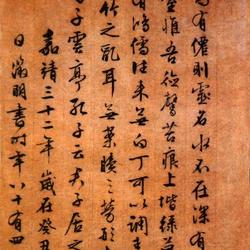 高有僊則靈名水不在深有
室惟吾德馨苔痕上堦綠草
有鴻儒往來無白丁可以調素
竹之亂耳無案牘之勞形
子雲亭孔子云君子居之
嘉靖三十二年歲在癸丑
日徵明書時年八十有四